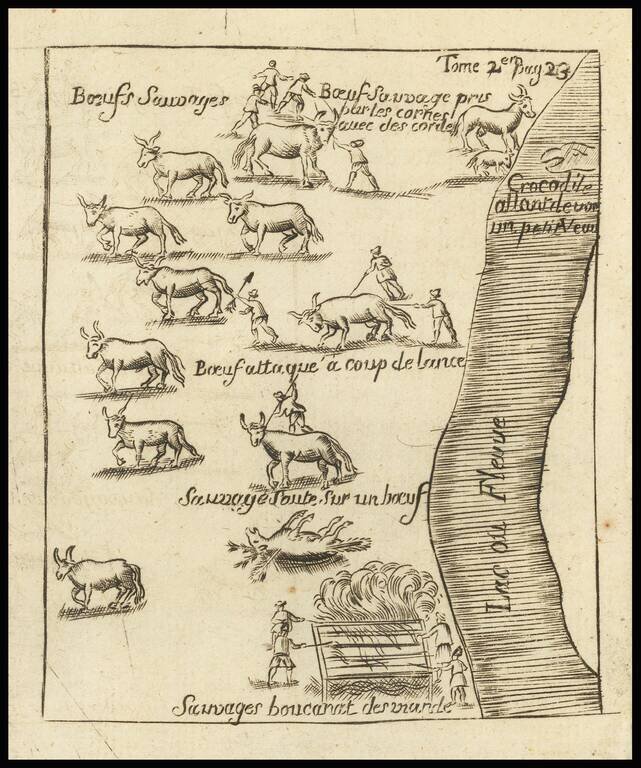 Tome 2.em pag 23
Bœufs Sauvages
Bœuf Sauvage pris
par les cornes
avec des cordes
Crocodile
un petit Veau
Bœuf attaqué à coup de lance
Sauvage Soute Sur un bœuf
Lac ou Fleuve
Sauvages boucanat des viande